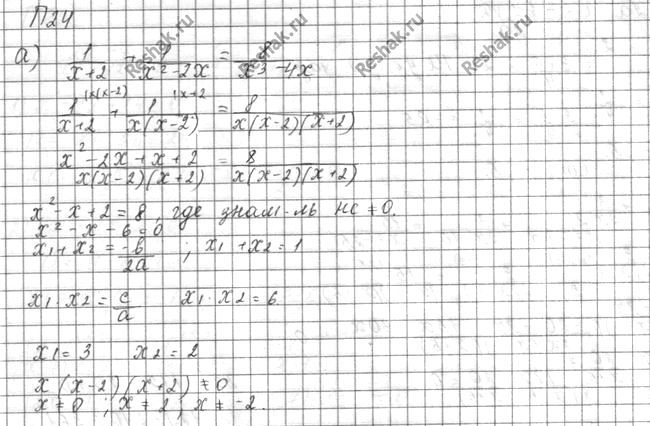 П24
а) 1/(x+2) + 1/(x² - 2x) = 8/(x³ - 4x)
1/(x+2) |x(x-2) + 1/(x(x-2)) |x+2 = 8/(x(x-2)(x+2))
(x² - 2x + x + 2)/(x(x-2)(x+2)) = 8/(x(x-2)(x+2))
x² - x + 2 = 8, где знам-ль не ≠ 0.
x² - x - 6 = 0
x₁ + x₂ = -b/2a ; x₁ + x₂ = 1
x₁ · x₂ = c/a x₁ · x₂ = 6
x₁ = 3 x₂ = 2
x(x-2)(x+2) ≠ 0
x ≠ 0 ; x ≠ 2 ; x ≠ -2.
Reshak.ru
Reshak.ru
Reshak.ru